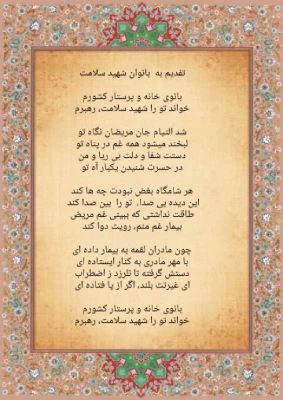 تقدیم به بانوان شهید سلامت
بانوی خانه و پرستار کشورم
خواند تو را شهید سلامت، رهبرم
شد التیام جان مریضان نگاه تو
لبخند میشود همه غم در پناه تو
دستت شفا و دلت بی ریا و من
در حسرت شنیدن یکبار آه تو
هر شامگاه بغض نبودت چه ها کند
این دیده بی صدا، تو را بین صدا کند
طاقت نداشتی که ببینی غم مریض
بیمار غم منم، رویت دوا کند
چون مادران لقمه به بیمار داده ای
با مهر مادری به کنار ایستاده ای
دستش گرفته تا نلرزد ز اضطراب
ای غیرتت بلند، اگر از پا فتاده ای
بانوی خانه و پرستار کشورم
خواند تو را شهید سلامت، رهبرم